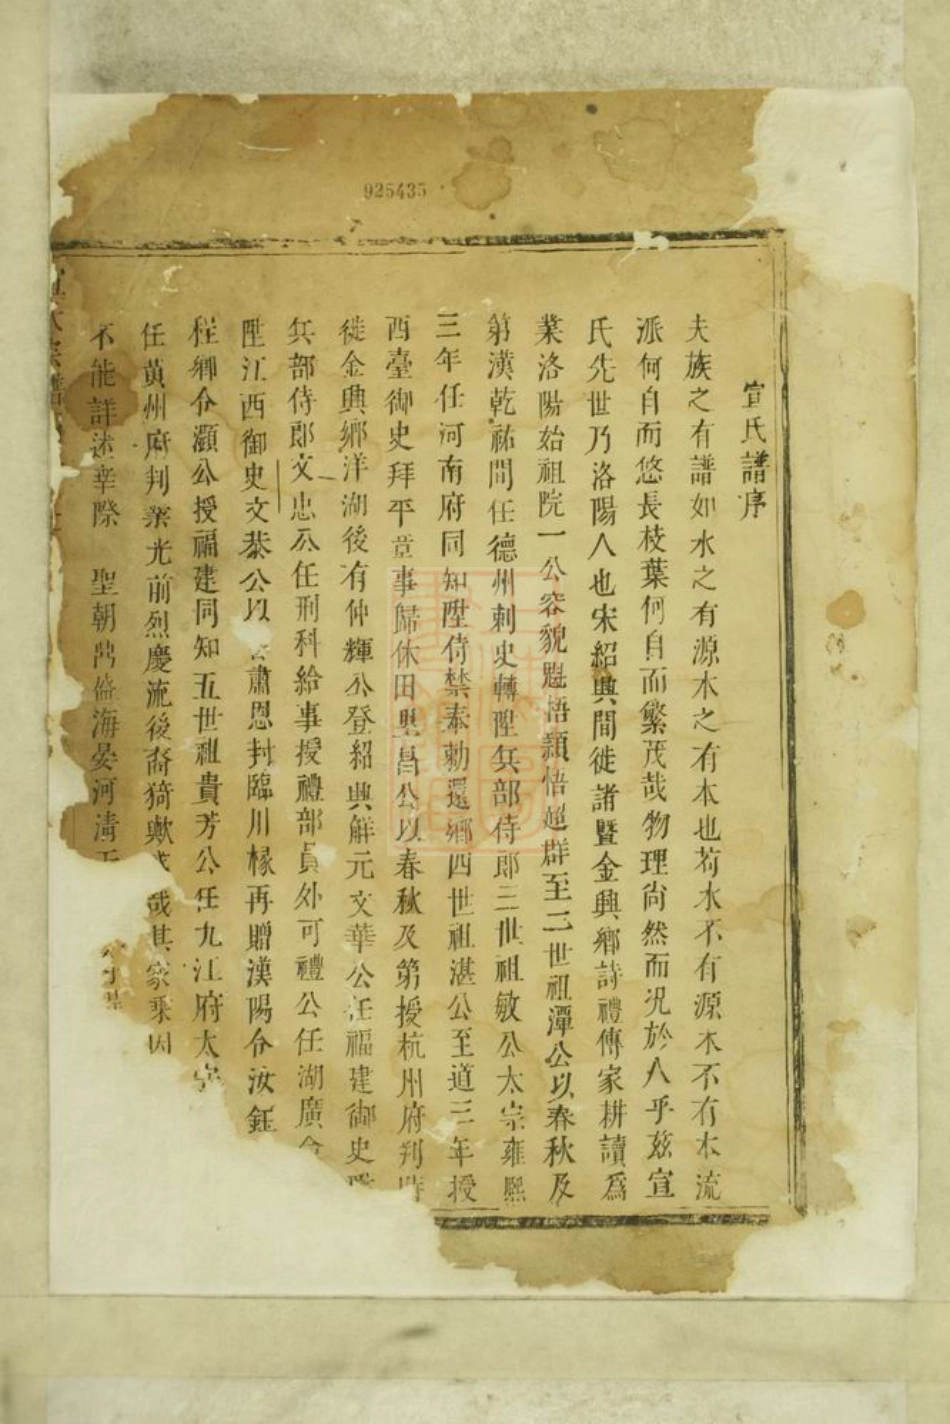 925435
宣氏譜序
夫族之有譜如水之有源木之有本也苟水不有源木不有本流
派何自而悠長枝葉何自而繁茂哉物理尚然而况於人乎兹宣
氏先世乃洛陽人也宋紹興間徙諸暨金興鄉詩禮傳家耕讀爲
業洛陽始祖院一公容貌魁梧穎悟超群至二世祖潭公以春秋及
第漢乾祐間任德州刺史轉陞兵部侍郎三世祖敏公太宗雍熈
三年任河南府同知陞侍禁奉勅還鄉四世祖湛公至道三年授
西臺御史拜平章事歸休田里昌公以春秋及第授杭州府判
徙金興鄉洋湖後有仲輝公登紹興解元文華公任福建御史
兵部侍郎文忠公任刑科給事授禮部員外可禮公任湖廣
陞江西御史文恭公以肅恩封臨川椽再贈漢陽令汝鈺
程鄉令灝公授福建同知五世祖貴芳公任九江府太
任黄州府判業光前烈慶流後裔猗歟哉其家乘因
不能詳述幸際 聖朝海晏河清